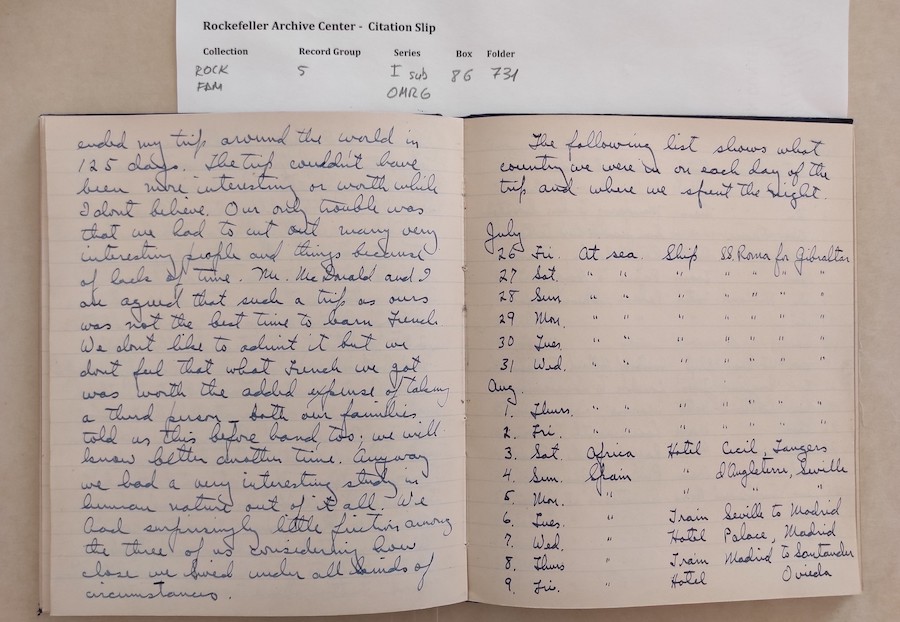 Rockefeller Archive Center - Citation Slip
Collection Record Group Series Box Folder
ROCK 5 I sub 86 731
FAM OMRG
ended my trip around the world in
125 days. The trip couldn't have
been more interesting or worth while
I dont believe. Our only trouble was
that we had to cut out many very
interesting people and things because
of lack of time. Mr. McDonald and I
are agreed that such a trip as ours
was not the best time to learn French
We dont like to admit it but we
dont feel that what French we got
was worth the added expense of taking
a third person - both our families
told us this before hand too; we will
know better another time. Anyway
we had a very interesting study in
human nature out of it all. We
had surprisingly little friction among
the three of us considering how
close we lived under all kinds of
circumstances.
The following list shows what
country we were in on each day of the
trip and where we spent the night.
July
26 Fri. At sea. Ship SS. Roma for Gibraltar
27 Sat. " " " " " " "
28 Sun " " " " " " "
29 Mon. " " " " " " "
30 Tues " " " " " " "
31 Wed. " " " " " " "
Aug.
1. Thurs. " " " " " " "
2. Fri. " " " " " " "
3. Sat. Africa Hotel Cecil, Tangers
4. Sun. Spain " d'Angleterre, Seville
5. Mon. " " " "
6. Tues. " Train Seville to Madrid
7. Wed. " Hotel Palace, Madrid
8. Thurs " Train Madrid to Santander
9. Fri. " Hotel Oviedo